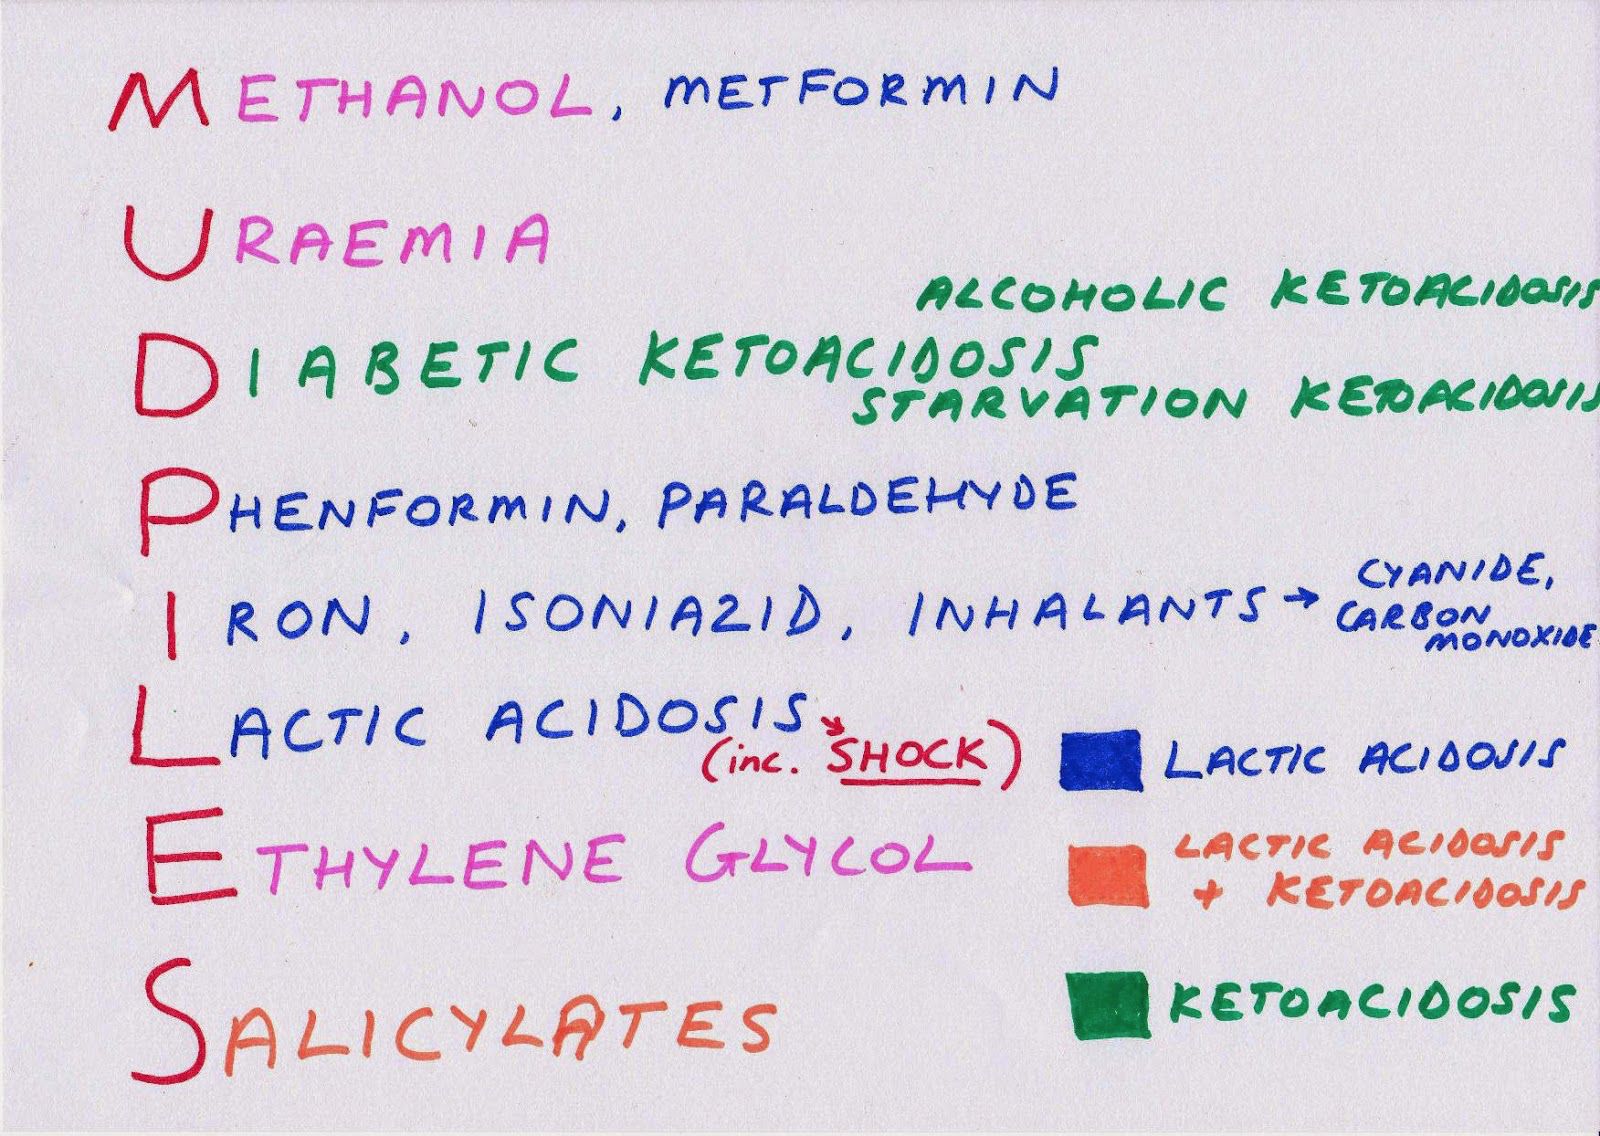 METHANOL, METFORMIN
URAEMIA
ALCOHOLIC KETOACIDOSIS
DIABETIC KETOACIDOSIS
STARVATION KETOACIDOSIS
PHENFORMIN, PARALDEHYDE
IRON, ISONIAZID, INHALANTS → CYANIDE,
CARBON
MONOXIDE
LACTIC ACIDOSIS
(inc. SHOCK)
LACTIC ACIDOSIS
ETHYLENE GLYCOL
LACTIC ACIDOSIS
+ KETOACIDOSIS
SALICYLATES
KETOACIDOSIS